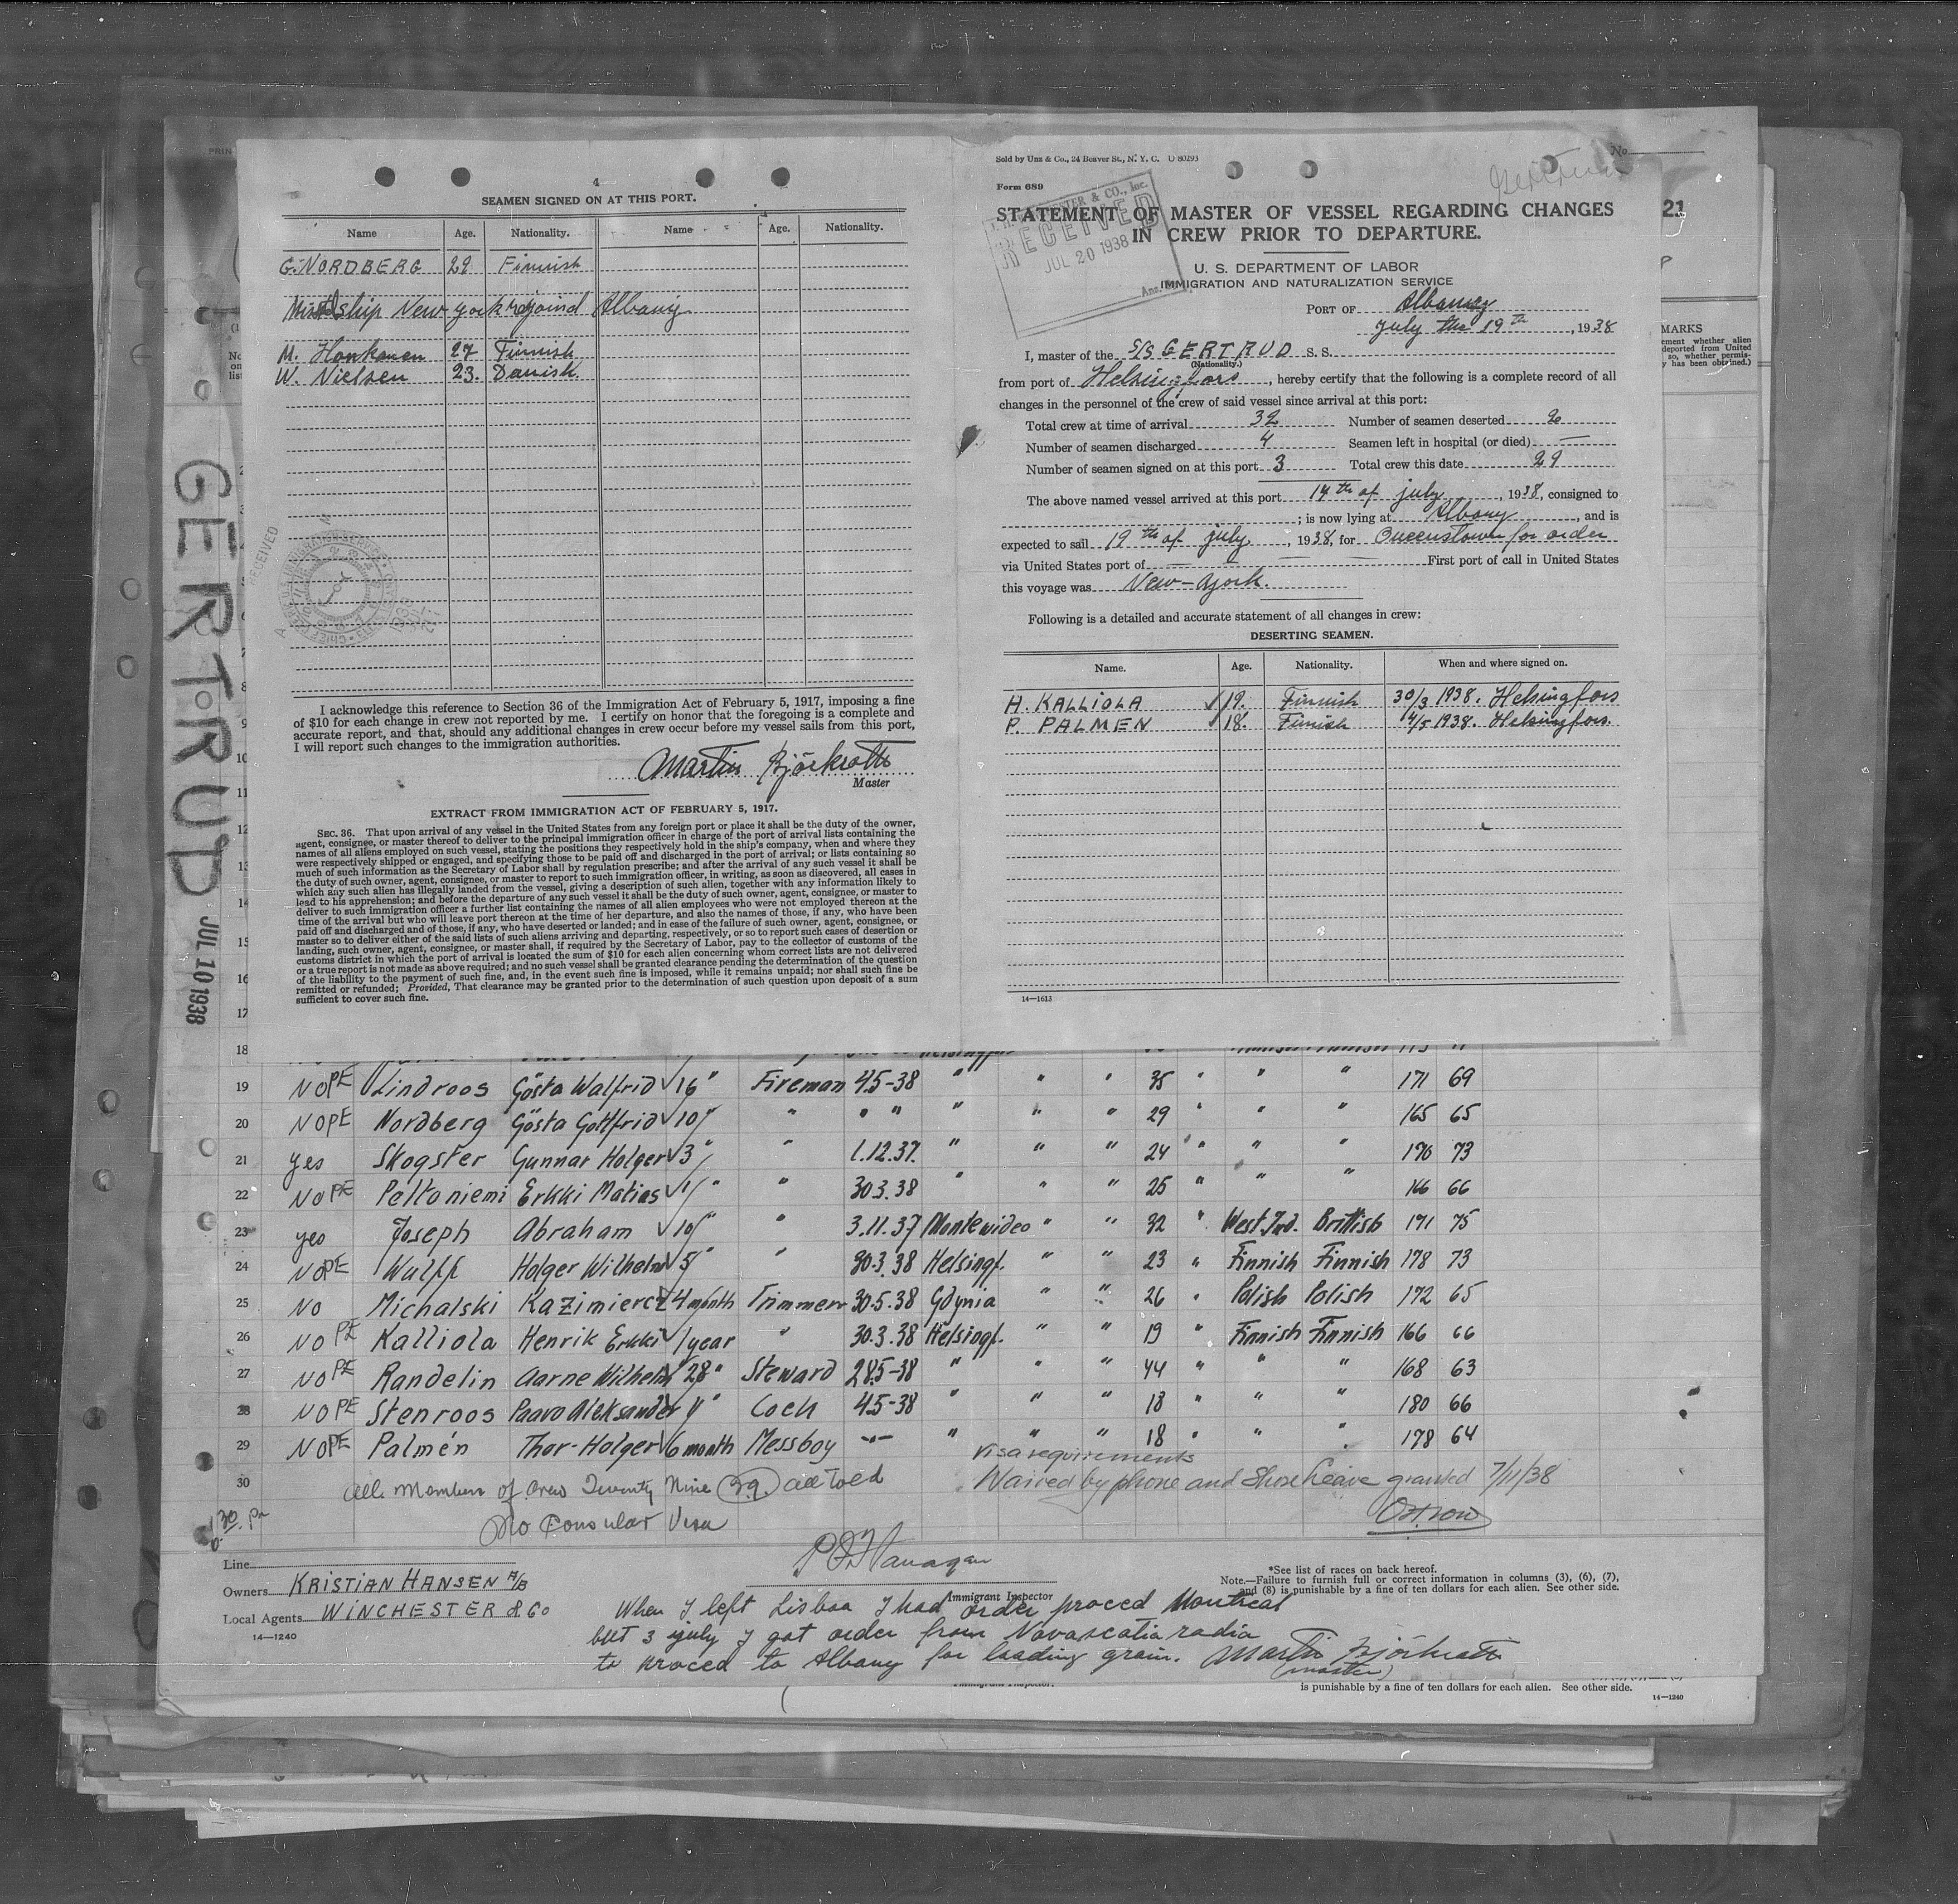 4
SEAMEN SIGNED ON AT THIS PORT.
Name Age. Nationality. Name Age. Nationality.
G. NORDBERG 29 Finnish
ship New york rejoind Albany
M. Honkanen 27 Finnish
W. Nielsen 23. Danish.
I acknowledge this reference to Section 36 of the Immigration Act of February 5, 1917, imposing a fine
of $10 for each change in crew not reported by me. I certify on honor that the foregoing is a complete and
accurate report, and that, should any additional changes in crew occur before my vessel sails from this port,
I will report such changes to the immigration authorities.
Martin Björkroth
Master
EXTRACT FROM IMMIGRATION ACT OF FEBRUARY 5, 1917.
SEC. 36. That upon arrival of any vessel in the United States from any foreign port or place it shall be the duty of the owner,
agent, consignee, or master thereof to deliver to the principal immigration officer in charge of the port of arrival lists containing the
names of all aliens employed on such vessel, stating the positions they respectively hold in the ship's company, when and where they
were respectively shipped or engaged, and specifying those to be paid off and discharged in the port of arrival; or lists containing so
much of such information as the Secretary of Labor shall by regulation prescribe; and after the arrival of any such vessel it shall be
the duty of such owner, agent, consignee, or master to report to such immigration officer, in writing, as soon as discovered, all cases in
which any such alien has illegally landed from the vessel, giving a description of such alien, together with any information likely to
lead to his apprehension; and before the departure of any such vessel it shall be the duty of such owner, agent, consignee, or master to
deliver to such immigration officer a further list containing the names of all alien employees who were not employed thereon at the
time of the arrival but who will leave port thereon at the time of her departure, and also the names of those, if any, who have been
paid off and discharged and of those, if any, who have deserted or landed; and in case of the failure of such owner, agent, consignee, or
master so to deliver either of the said lists of such aliens arriving and departing, respectively, or so to report such cases of desertion or
landing, such owner, agent, consignee, or master shall, if required by the Secretary of Labor, pay to the collector of customs of the
customs district in which the port of arrival is located the sum of $10 for each alien concerning whom correct lists are not delivered
or a true report is not made as above required; and no such vessel shall be granted clearance pending the determination of the question
of the liability to the payment of such fine, and, in the event such fine is imposed, while it remains unpaid; nor shall such fine be
remitted or refunded; Provided, That clearance may be granted prior to the determination of such question upon deposit of a sum
sufficient to cover such fine.
Sold by Unz & Co., 24 Beaver St., N. Y. C. U 80293
No
Form 689
& CO., Inc.
RECEIVED
JUL 20 1938
STATEMENT OF MASTER OF VESSEL REGARDING CHANGES
IN CREW PRIOR TO DEPARTURE.
U. S. DEPARTMENT OF LABOR
IMMIGRATION AND NATURALIZATION SERVICE
PORT OF Albany
July the 19th, 1938
I, master of the S/S GERTRUD S. S.
(Nationality.)
from port of Helsingfors, hereby certify that the following is a complete record of all
changes in the personnel of the crew of said vessel since arrival at this port:
Total crew at time of arrival 32 Number of seamen deserted 2
Number of seamen discharged 4 Seamen left in hospital (or died) —
Number of seamen signed on at this port 3 Total crew this date 29
The above named vessel arrived at this port 14th of july, 1938, consigned to
; is now lying at Albany, and is
expected to sail 19th of july, 1938, for Queenstown for order
via United States port of — First port of call in United States
this voyage was New-York.
Following is a detailed and accurate statement of all changes in crew:
DESERTING SEAMEN.
Name. Age. Nationality. When and where signed on.
H. KALLIOLA 19. Finnish 30/3 1938. Helsingfors
P. PALMEN 18. Finnish 4/5 1938. Helsingfors.
14—1613
21
MARKS
GERTRUD
JUL 10 1938
RECEIVED
8
9
10
11
12
13
14
15
16
17
18
19 NO PE Lindroos Gösta Walfrid 16 " Fireman 4.5-38 " " " 35 " " " 171 69
20 NO PE Nordberg Gösta Gottfrid 10 " " " " " " " 29 " " 165 65
21 yes Skogster Gunnar Holger 3 " " 1.12.37. " " " 24 " " " 170 73
22 NO PE Peltoniemi Erkki Matias 1 " " 30.3.38 " " " 25 " " " 166 66
23 yes Joseph Abraham 10 " " 3.11.37 Montevideo " " 32 " West.Ind. British 171 75
24 NO PE Wulff Holger Wilhelm 5 " " 30.3.38 Helsingf. " " 23 " Finnish Finnish 178 73
25 NO Michalski Kazimierz 4 month Trimmer 30.5.38 Gdynia " " 26 " Polish Polish 172 65
26 NO PE Kalliola Henrik Erkki 1 year " 30.3.38 Helsingf. " " 19 " Finnish Finnish 166 66
27 NO PE Randelin Aarne Wilhelm 28 " Steward 28.5-38 " " " 44 " " " 168 63
28 NO PE Stenroos Paavo Aleksander " Cock 4.5-38 " " " 18 " " " 180 66
29 NO PE Palmén Thor-Holger 6 month Messboy —"— " " " 18 " " " 178 64
visa requirements
30 All members of crew Twenty Nine (29) all told Waived by phone and Shore Leave granted 7/11/38
No Consular Visa
Line
Owners KRISTIAN HANSEN A/B
Local Agents WINCHESTER & Co
14—1240
Immigrant Inspector
*See list of races on back hereof.
Note.—Failure to furnish full or correct information in columns (3), (6), (7),
and (8) is punishable by a fine of ten dollars for each alien. See other side.
When I left Lisboa I had order proced Montreal
but 3 july I got order from Novascotia radio
to proced to Albany for loading grain. Martin Björkroth
(master)
is punishable by a fine of ten dollars for each alien. See other side.
14—1240